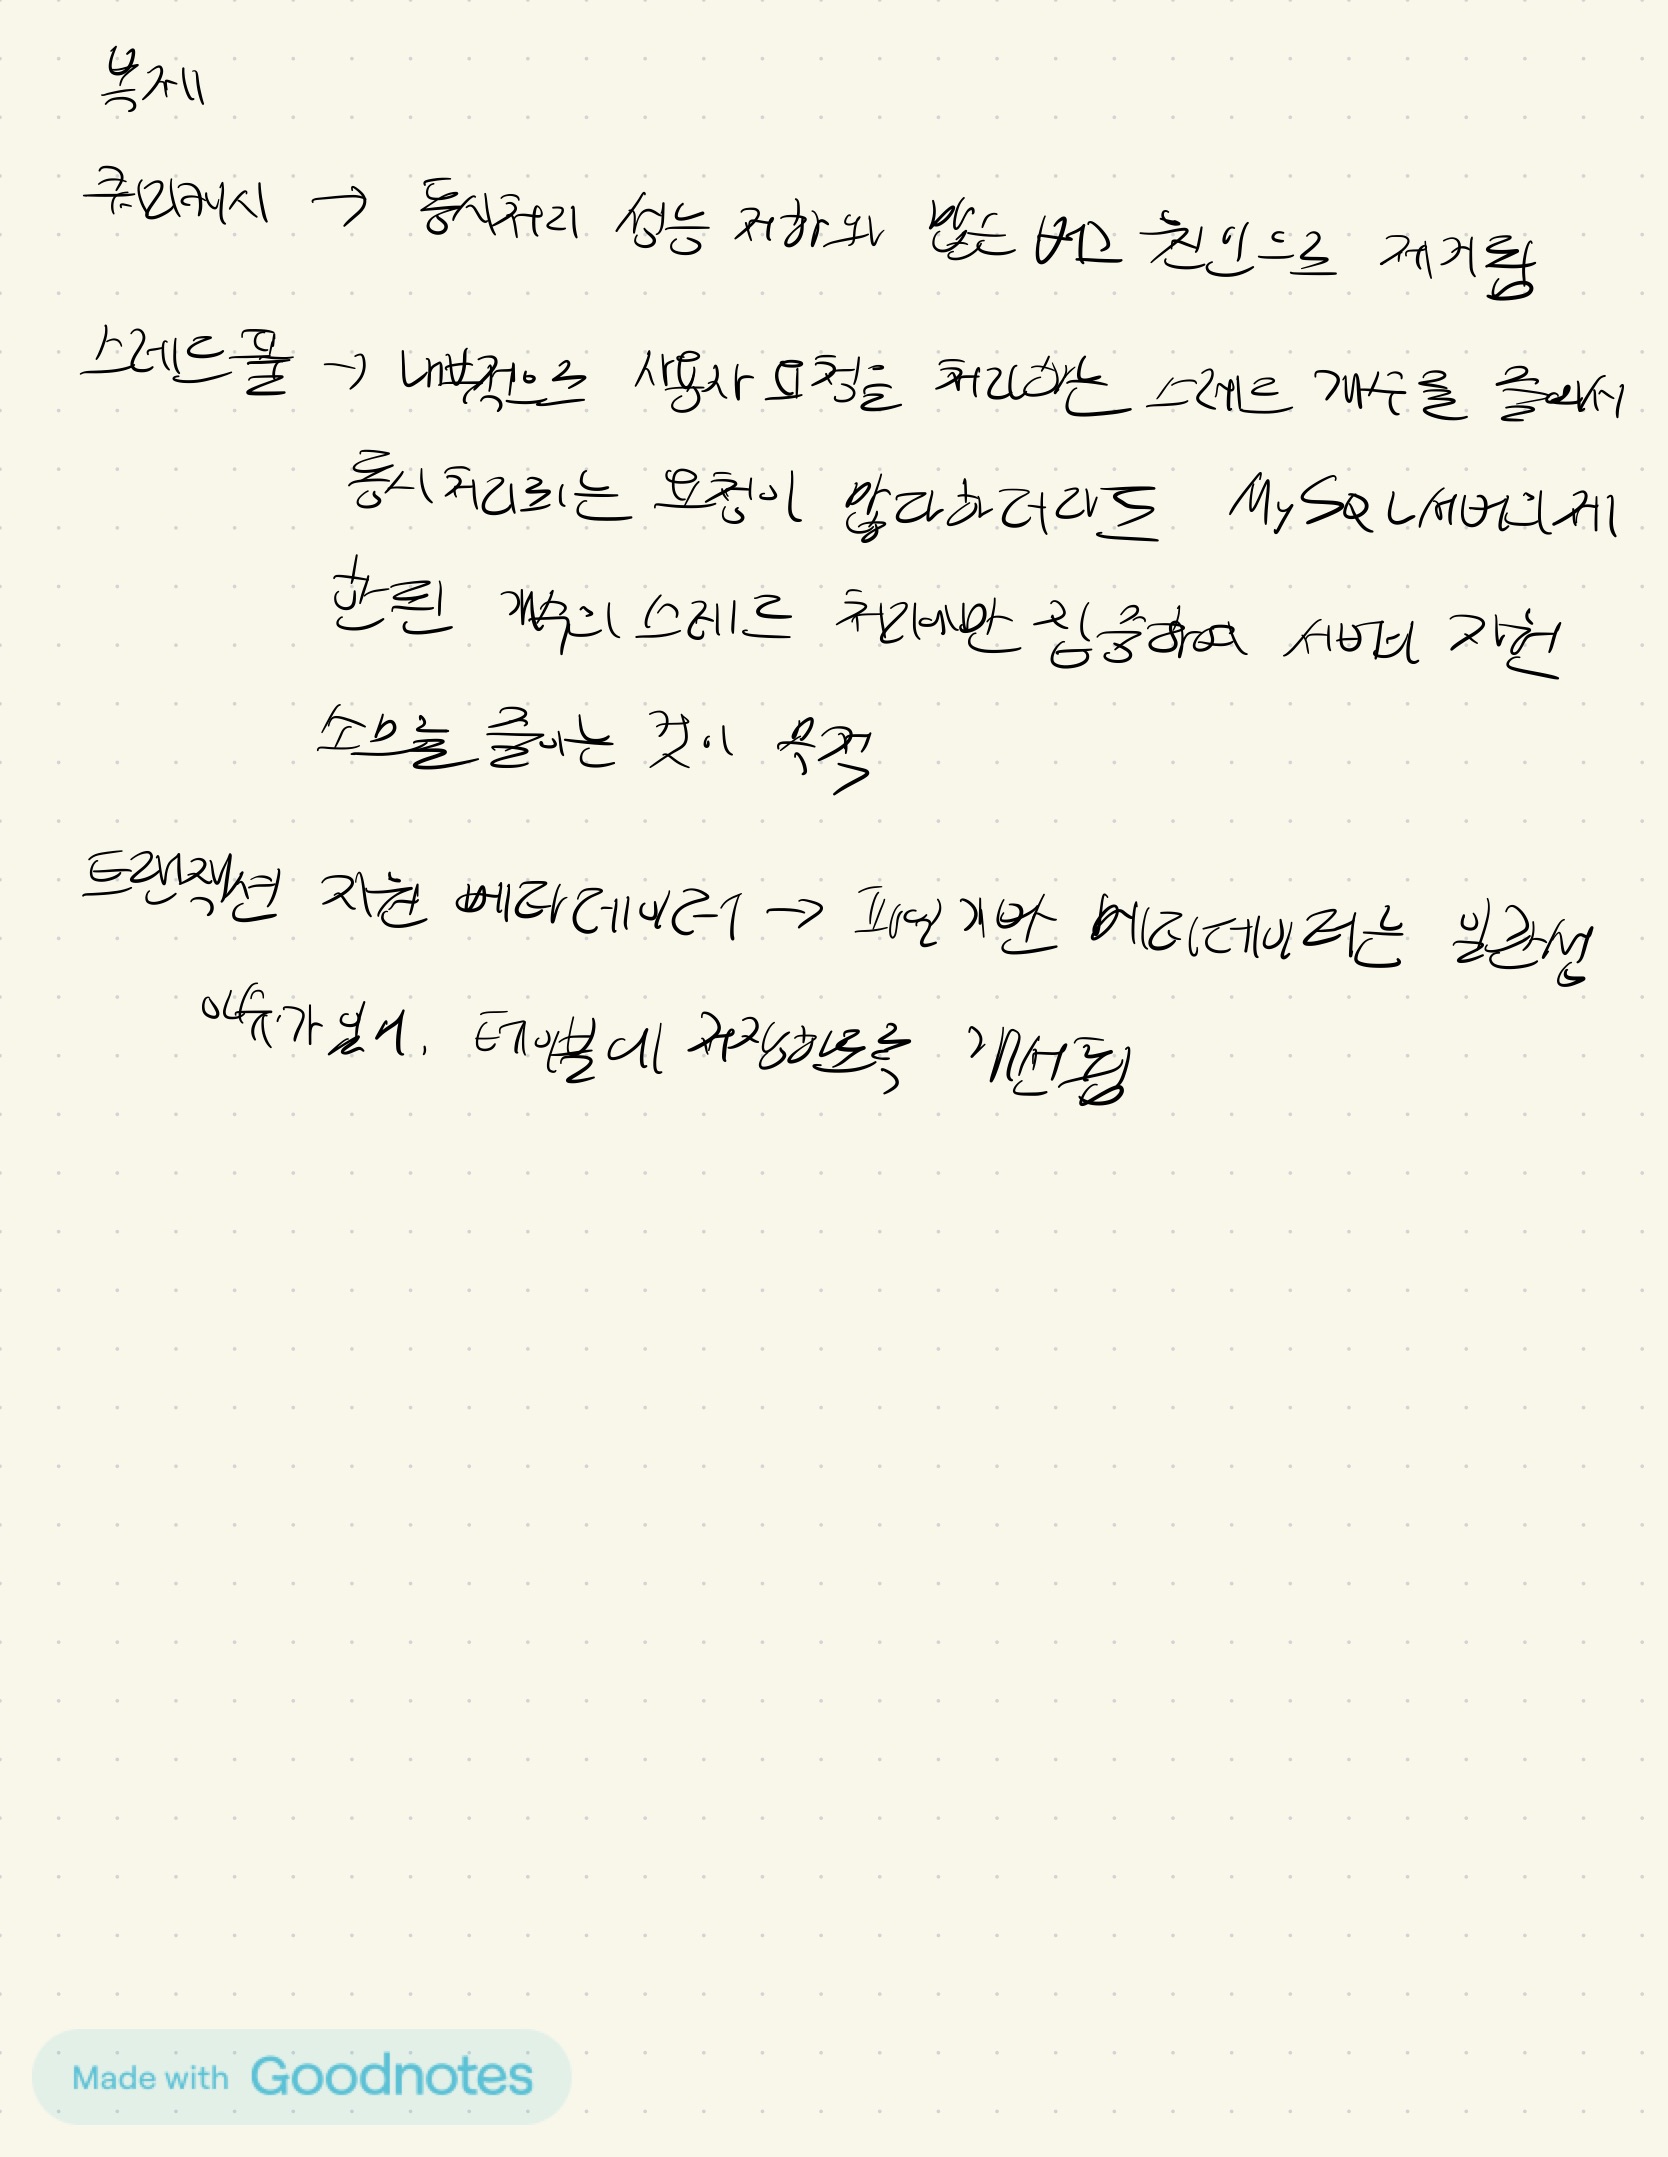 복제
쿼리캐시 → 동시처리 성능 저하와 많은 버그 원인으로 제거됨
스레드풀 → 내부적으로 사용자 요청을 처리하는 스레드 개수를 줄여서
동시 처리되는 요청이 많다하더라도 MySQL서버의 제
한된 개수의 스레드 처리에만 집중하여 서버의 자원
소모를 줄이는 것이 목적
트랜잭션 지원 메타데이터 → 파일기반 메타데이터는 일관성
이슈가 있어, 테이블에 저장하도록 개선됨
Made with Goodnotes